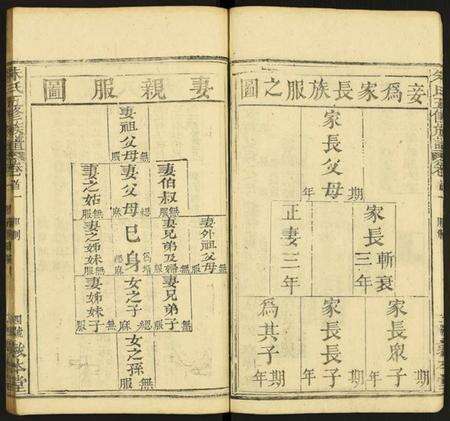 妾為家長族服之圖
家長父母 期年
家長 斬衰三年
正妻 三年
家長眾子 期年
家長長子 期年
為其子 期年
妻親服圖
妻祖父母 無服
妻父母 緦麻
妻伯叔 無服
妻之姑 無服
妻外祖父母 無服
妻兄弟及婦 無服
己身
妻之姊妹 無服
妻兄弟子 無服
女之子 緦麻
妻姊妹子 無服
女之孫 無服
朱氏五修族譜
卷首一
服制
敦本堂